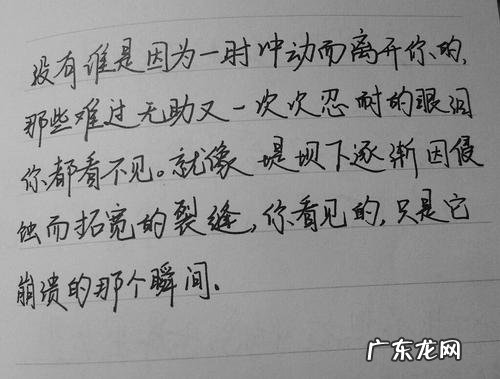 没有谁是因为一时冲动而离开你的,
那些难过无助又一次次忍耐的眼泪
你都看不见。就像堤坝下逐渐因侵
蚀而拓宽的裂缝,你看见的,只是它
崩溃的那个瞬间.
广东龙网